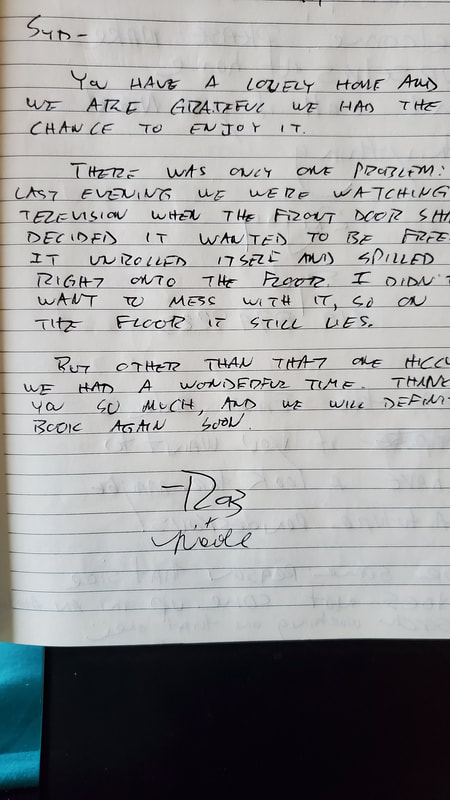 SYD-
YOU HAVE A LOVELY HOME AND
WE ARE GRATEFUL WE HAD THE
CHANCE TO ENJOY IT.
THERE WAS ONLY ONE PROBLEM:
LAST EVENING WE WERE WATCHING
TELEVISION WHEN THE FRONT DOOR SHA
DECIDED IT WANTED TO BE FREE
IT UNROLLED ITSELF AND SPILLED
RIGHT ONTO THE FLOOR. I DIDN'T
WANT TO MESS WITH IT, SO ON
THE FLOOR IT STILL LIES.
BUT OTHER THAN THAT ONE HICCU
WE HAD A WONDERFUL TIME. THANK
YOU SO MUCH, AND WE WILL DEFINIT
BOOK AGAIN SOON.
-ROB
+